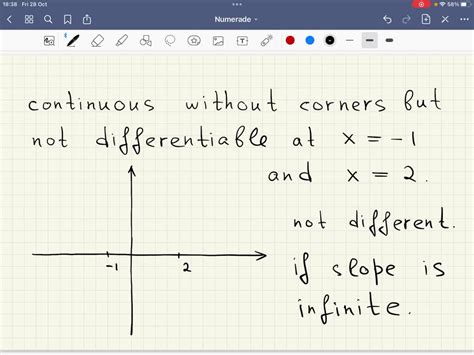 18:38 Fri 28 Oct
58%
Numerade
continuous without corners but
not differentiable at x = -1
and x = 2.
not different.
if slope is
infinite.
-1 2